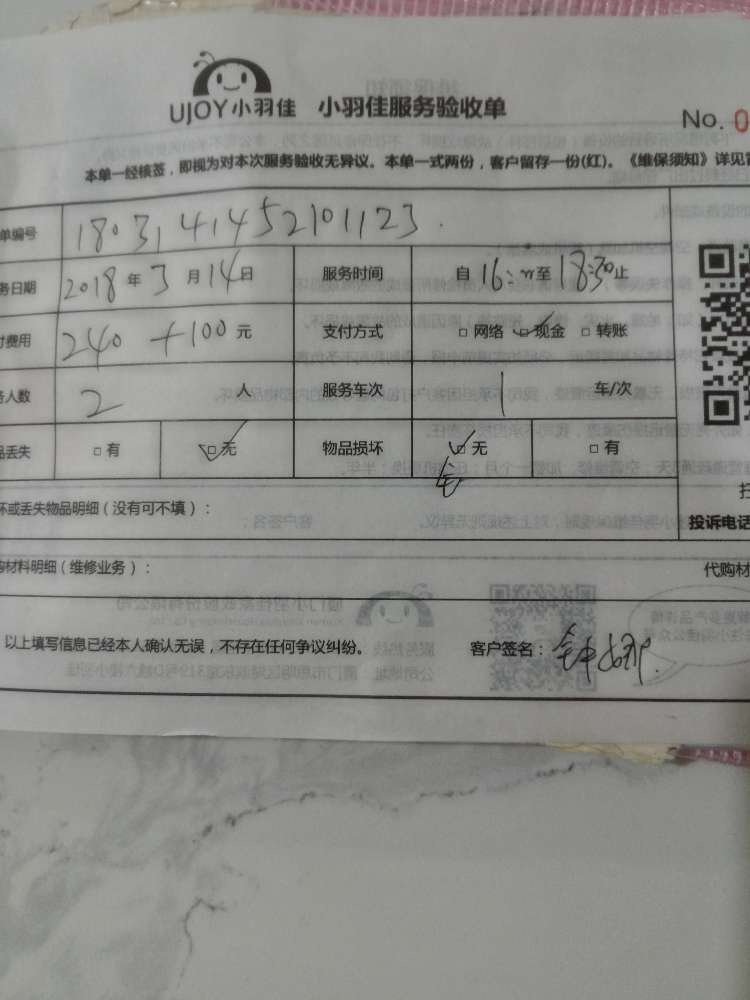 UJOY小羽佳 小羽佳服务验收单
No. 0
本单一经核签，即视为对本次服务验收无异议。本单一式两份，客户留存一份(红)。《维保须知》详见
单编号 1803141452101123
务日期 2018年3月14日 服务时间 自16: 至18:30止
付费用 240+100元 支付方式 □网络 □现金 □转账
务人数 2人 服务车次 1 车/次
品丢失 □有 □无 物品损坏 □无 □有
坏或丢失物品明细（没有可不填）：
投诉电话
购材料明细（维修业务）： 代购材
以上填写信息已经本人确认无误，不存在任何争议纠纷。 客户签名：